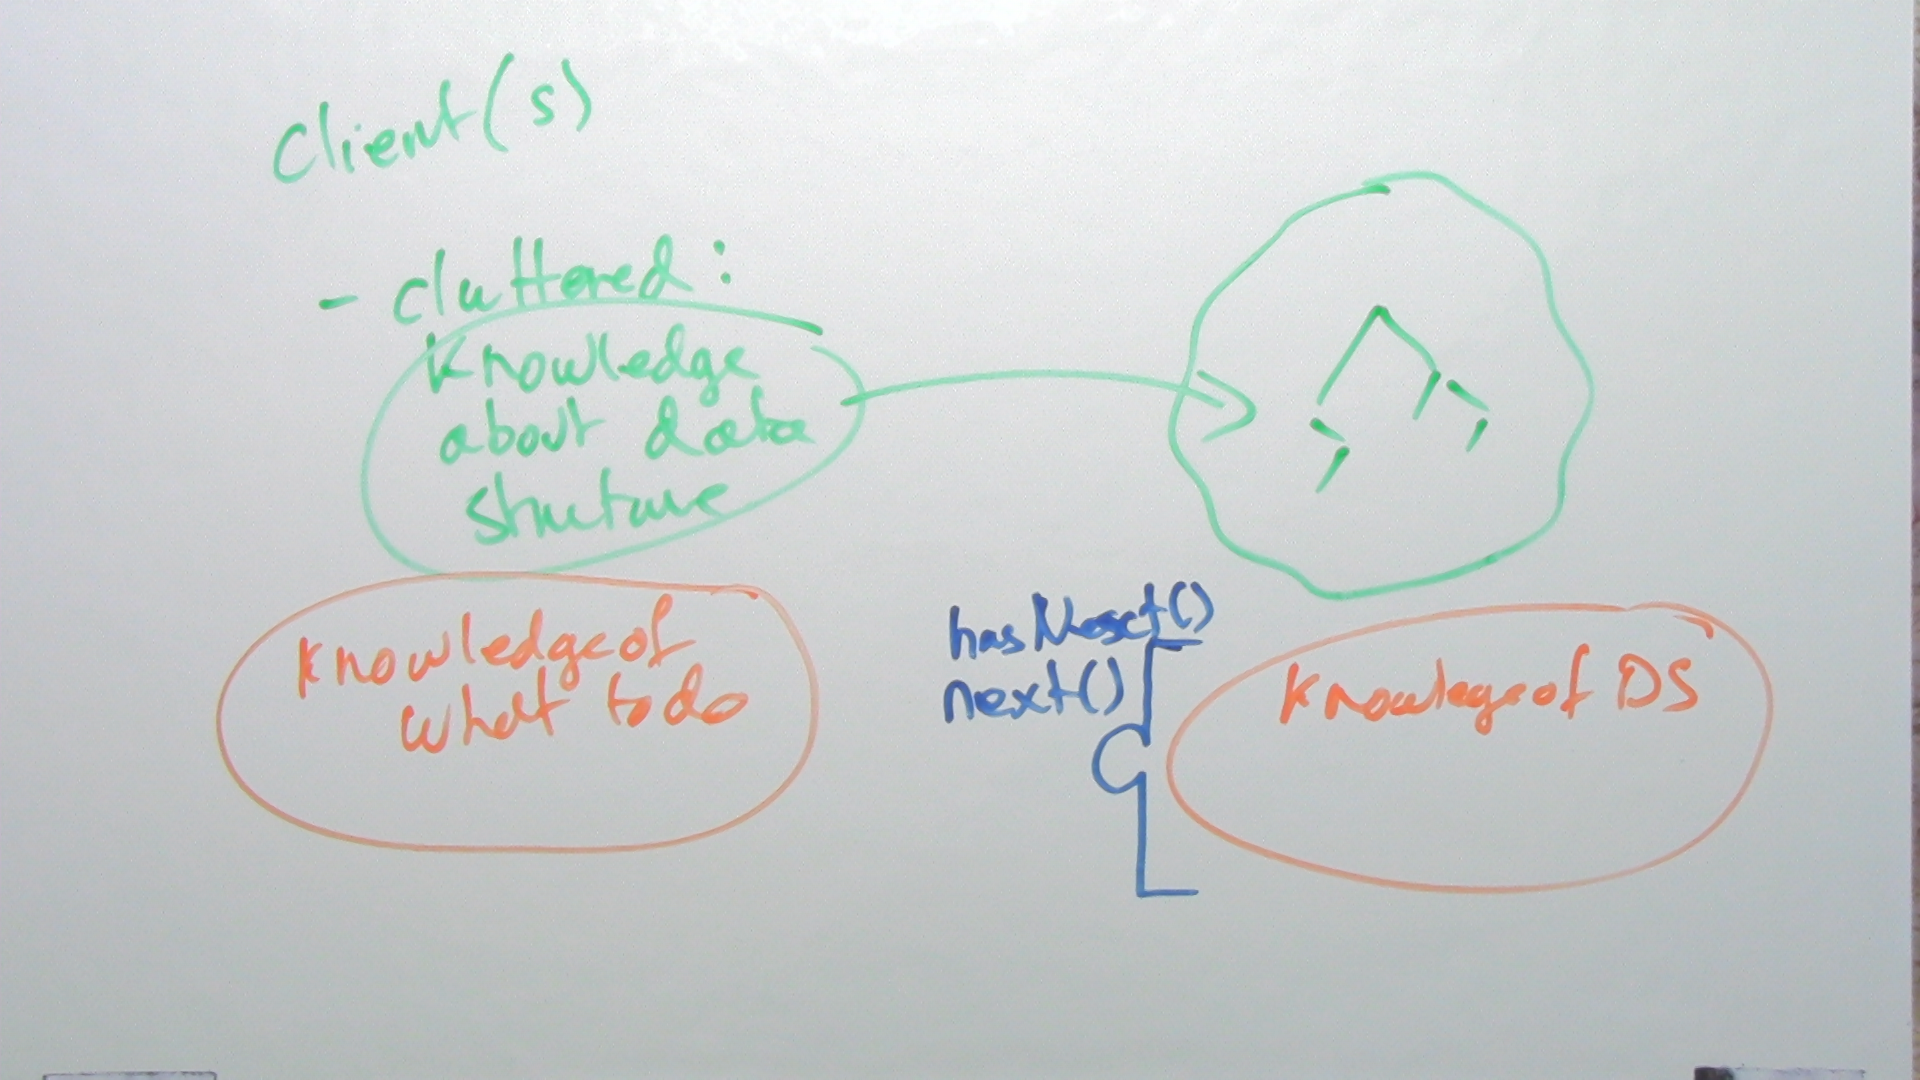 Client(s)
- cluttered:
Knowledge
about data
structure
Knowledge of
what to do
hasNext()
next()
Knowlege of DS